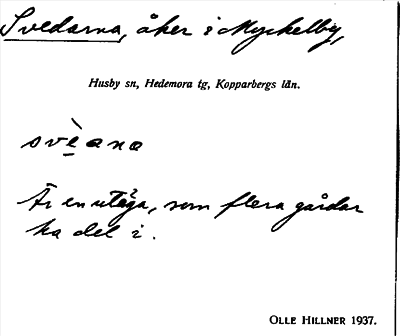 Svedarna, åker i Myckelby,
Husby sn, Hedemora tg, Kopparbergs län.
svè̱ana
Är en utäga, som flera gårdar
ha del i.
OLLE HILLNER 1937.